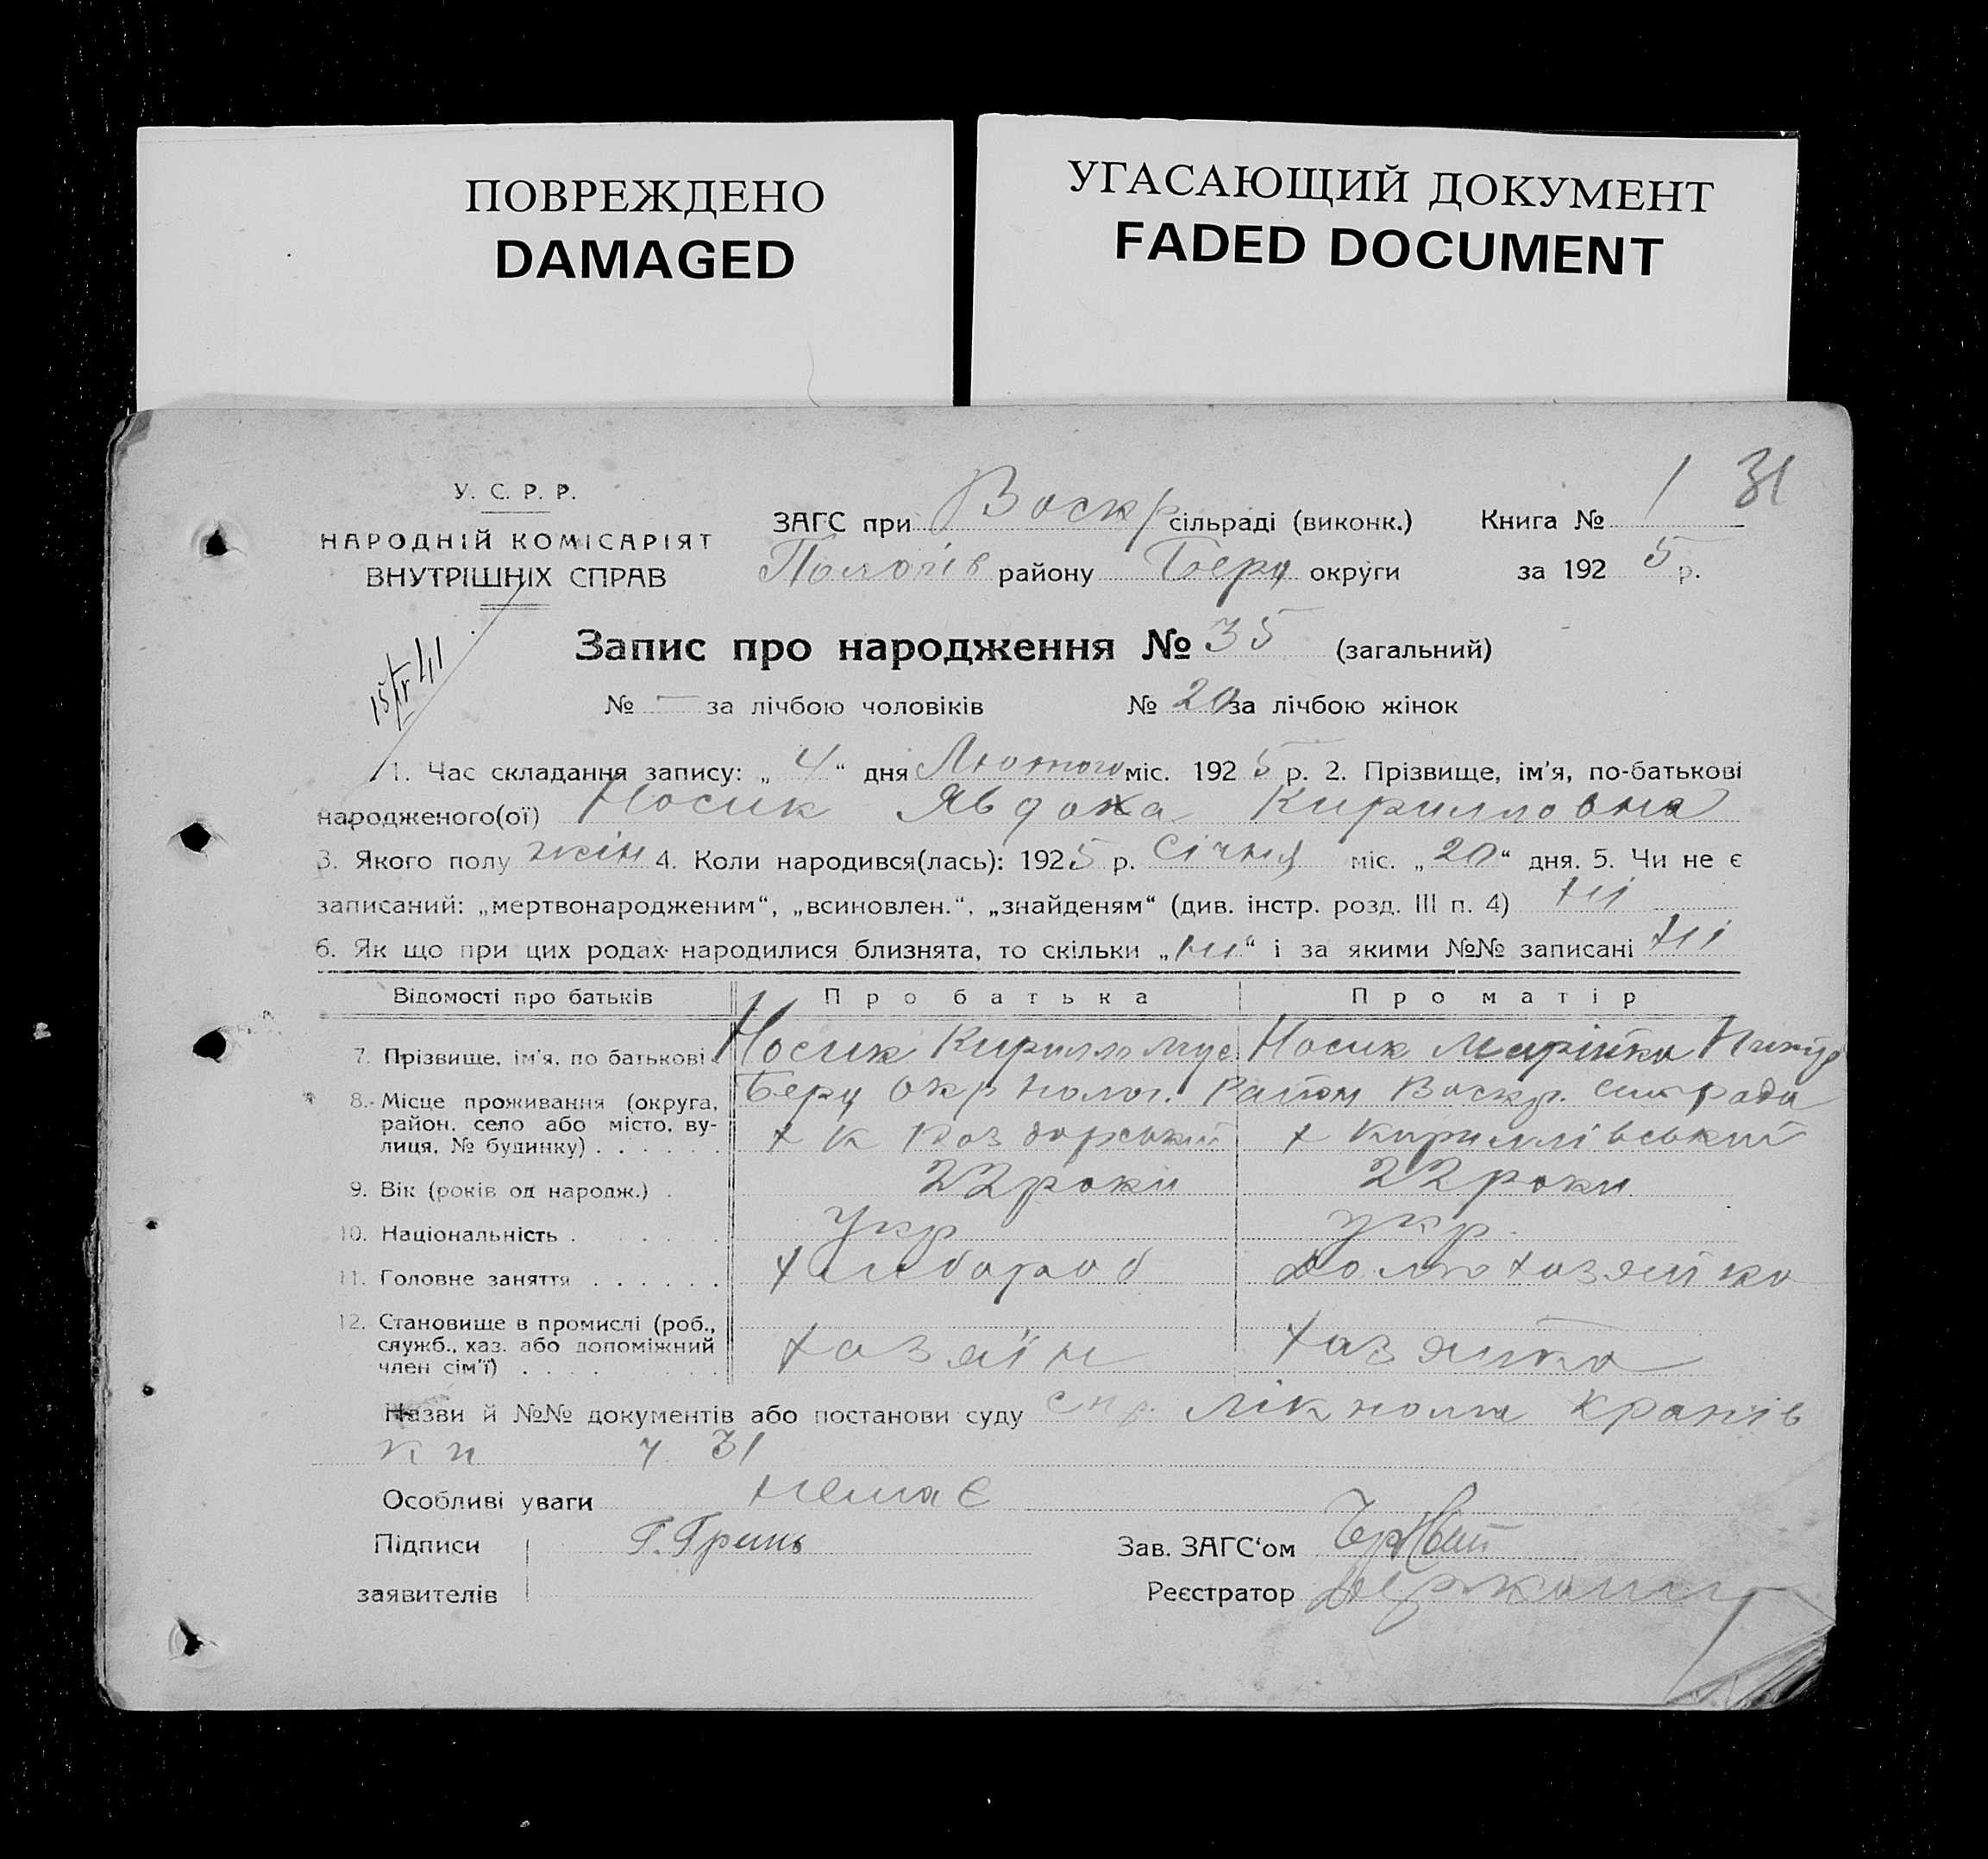 ПОВРЕЖДЕНО
DAMAGED
УГАСАЮЩИЙ ДОКУМЕНТ
FADED DOCUMENT
1 31
У. С. Р. Р.
НАРОДНІЙ КОМІСАРІЯТ
ВНУТРІШНІХ СПРАВ
ЗАГС при Воскр сільраді (виконк.) Книга №
Пологів району Берд округи за 192 5 р.
Запис про народження № 35 (загальний)
15/IV 41
№ — за лічбою чоловіків № 20 за лічбою жінок
1. Час складання запису: „ 4 “ дня Лютого міс. 192 5 р. 2. Прізвище, ім'я, по-батькові
народженого(ої) Носик Явдоха Кирилловна
3. Якого полу жін 4. Коли народився(лась): 192 5 р. Січня міс. „ 20 “ дня. 5. Чи не є
записаний: „мертвонародженим“, „всиновлен.“, „знайденям“ (див. інстр. розд. III п. 4) ні
6. Як що при цих родах народилися близнята, то скільки „ ні “ і за якими №№ записані ні
Відомості про батьків Про батька Про матір
7. Прізвище, ім'я, по батькові Носик Кирилло Носик Марійка
8. Місце проживання (округа, район, село або місто, ву-
лиця, № будинку) Берд Окр Полог. Район Воскр. сільрада
х Кириллівський
9. Вік (років од народж.) 22 роки 22 роки
10. Національність укр укр.
11. Головне заняття хлібороб домохазяйка
12. Становище в промислі (роб.,
служб., хаз. або допоміжний
член сім'ї) хазяїн хазяйка
Назви й №№ документів або постанови суду
ч 31
Особливі уваги немає
Підписи Г. Гринь Зав. ЗАГС'ом
заявителів Реєстратор